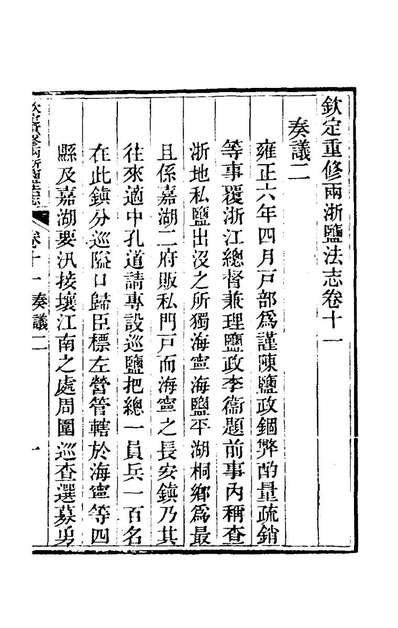 欽定重修兩浙鹽法志卷十一
奏議二
雍正六年四月戸部爲謹陳鹽政錮弊酌量疏銷
等事覆浙江總督兼理鹽政李衞題前事內稱查
浙地私鹽出沒之所獨海寧海鹽平湖桐鄉爲最
且係嘉湖二府販私門戸而海寧之長安鎮乃其
往來適中孔道請專設巡鹽把總一員兵一百名
在此鎮分巡隘口歸臣標左營管轄於海寧等四
縣及嘉湖要汛接壤江南之處周圍巡查選募勇
欽定重修兩浙鹽法志
卷十一 奏議二
一